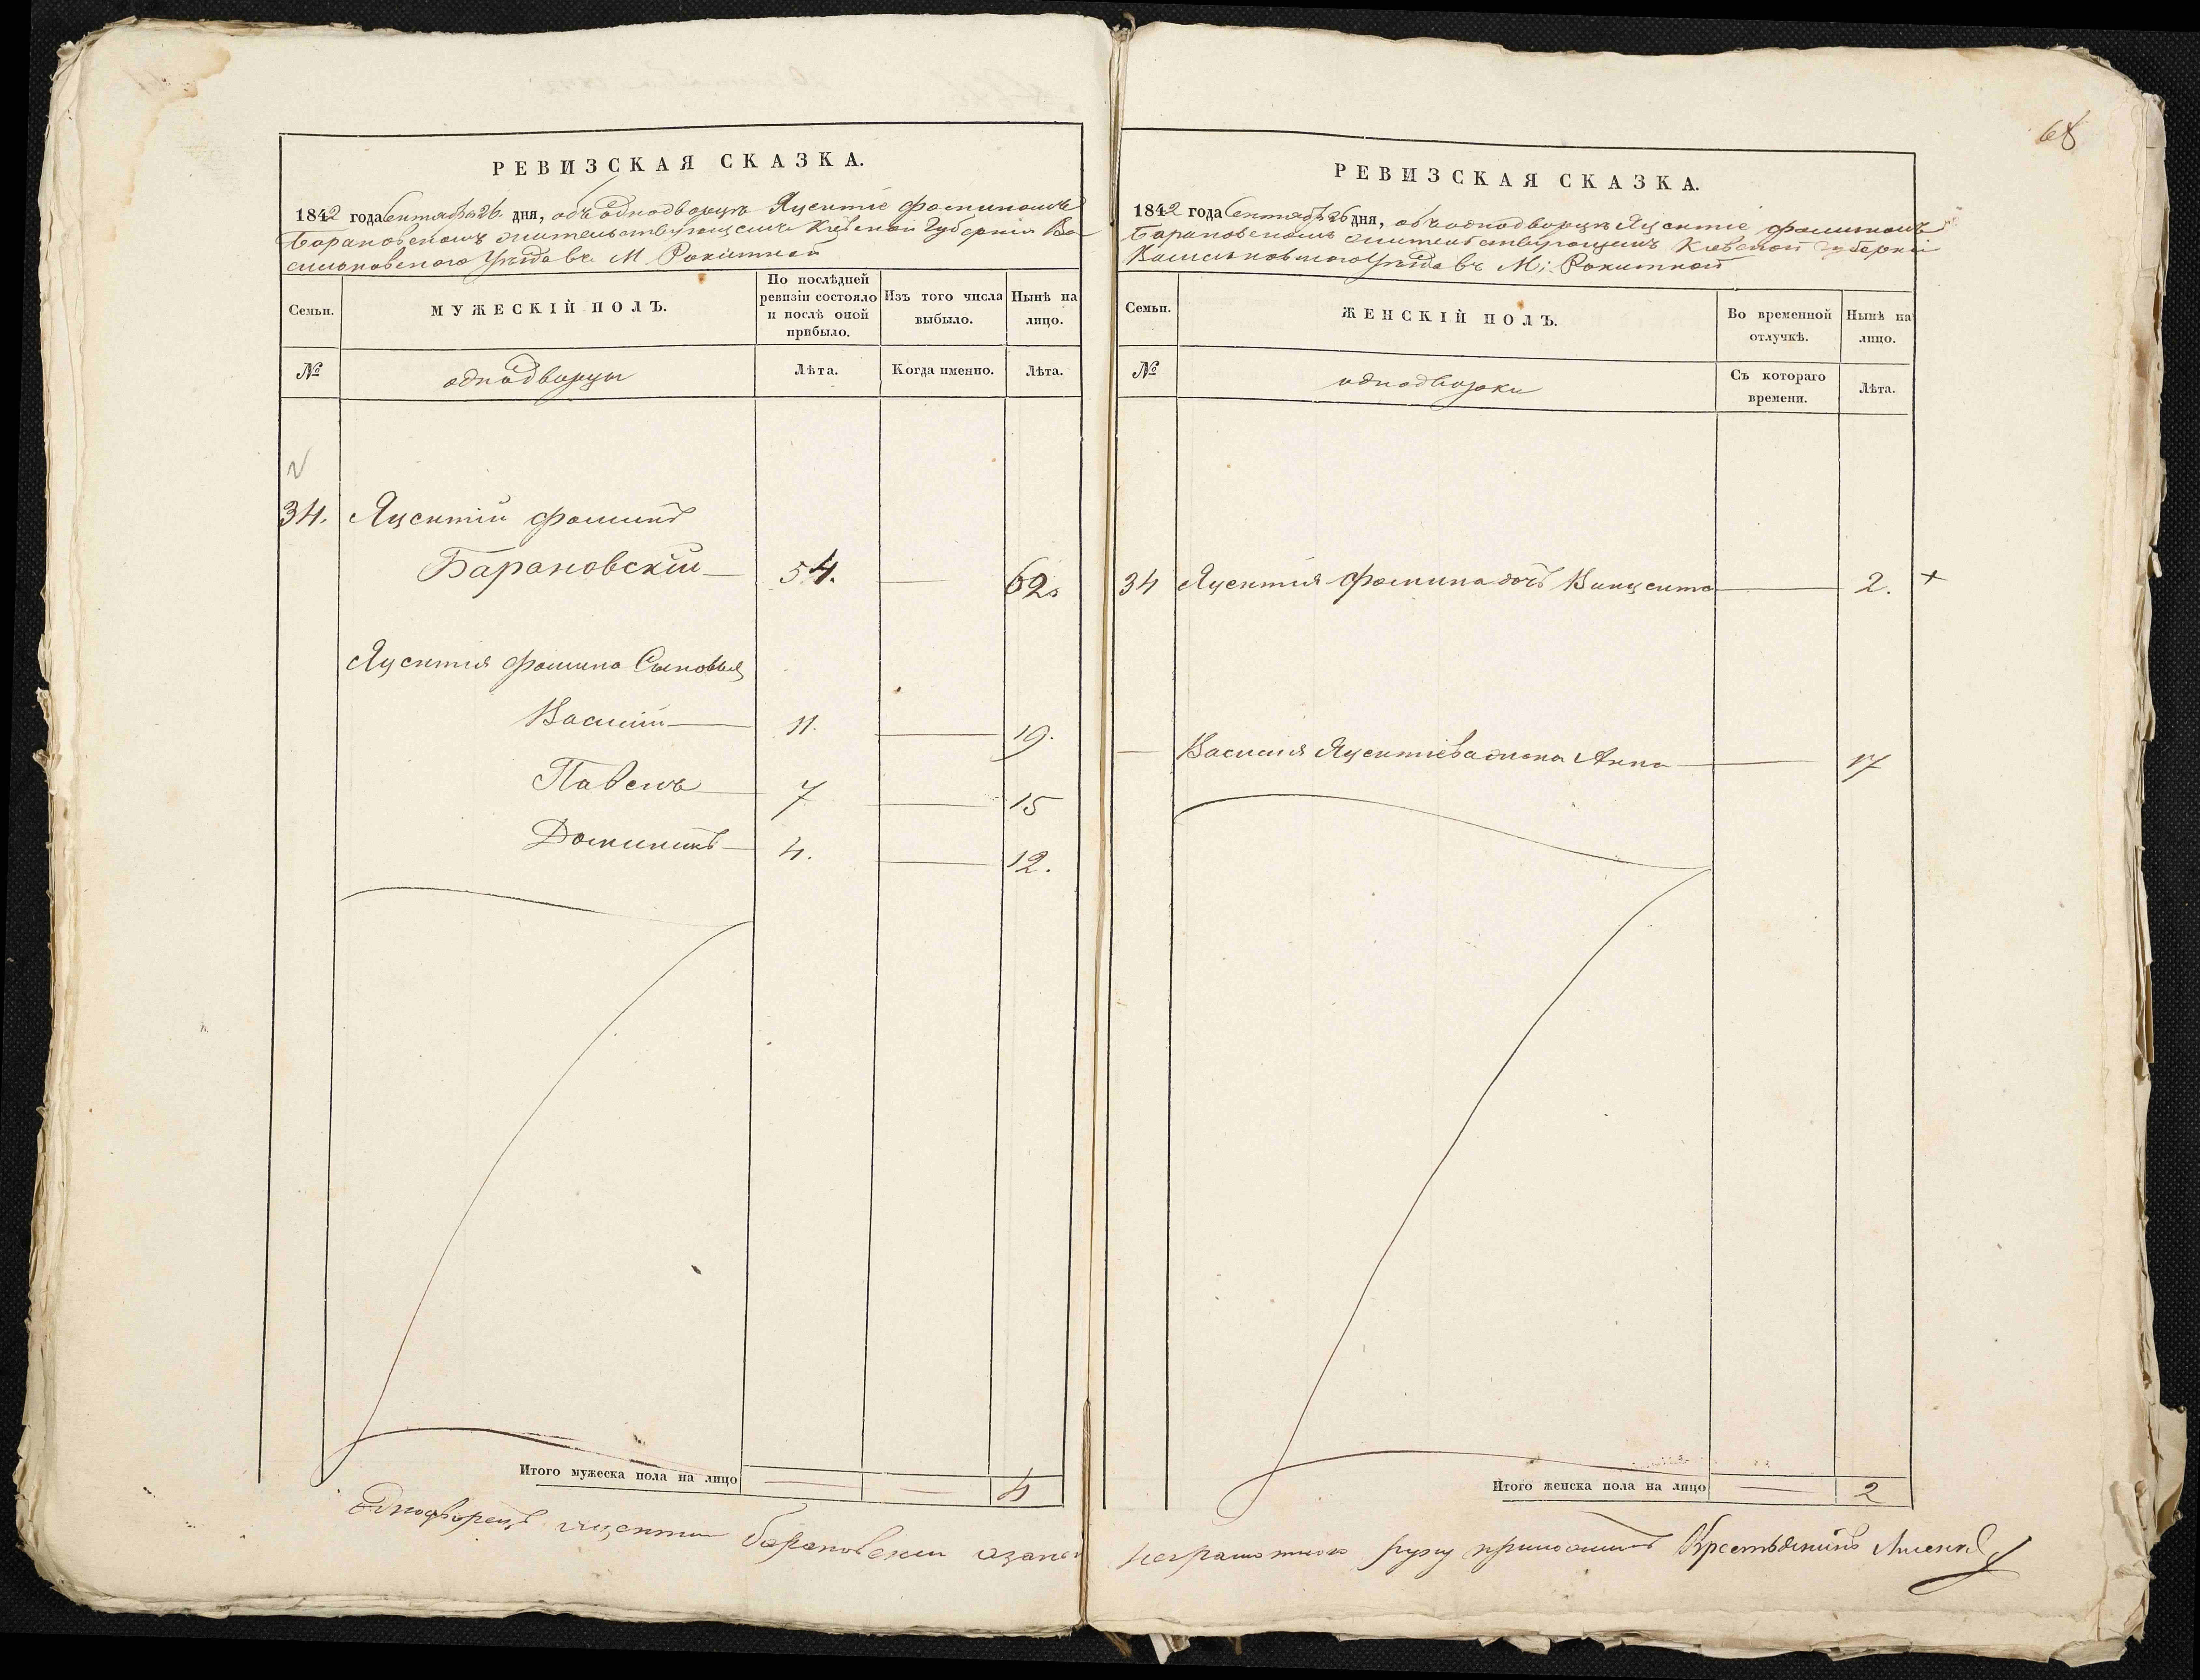 РЕВИЗСКАЯ СКАЗКА.
1842 года Сентября 26. дня, объ однодворцѣ Яцентіе Фоминомъ
Барановскомъ жительствующемъ Кіевской Губерніи Ва-
сильковского Уѣзда въ М Рокитной
Семьи.
МУЖЕСКІЙ ПОЛЪ.
По послѣдней ревизіи состояло и послѣ оной прибыло.
Изъ того числа выбыло.
Нынѣ на лицо.
№
однодворцы
Лѣта.
Когда именно.
Лѣта.
34. Яцентій Фоминъ
Барановскій — 54. — 62.
Яцентія Фомина Сыновья
Василій — 11. — 19.
Павелъ — 7 — 15
Доминикъ — 4. — 12.
Итого мужеска пола на лицо — — 4
Однодворецъ Яцентій Барановскій а за него
68
РЕВИЗСКАЯ СКАЗКА.
1842 года Сентября 26 дня, объ однодворцѣ Яцентіе Фоминомъ
Барановскомъ жительствующемъ Кіевской Губерніи
Васильковского Уѣзда въ М: Рокитной
Семьи.
ЖЕНСКІЙ ПОЛЪ.
Во временной отлучкѣ.
Нынѣ на лицо.
№
однодворки
Съ котораго времени.
Лѣта.
34 Яцентія Фомина дочь Винцента — 2. +
— Василія Яцентіева жена Анна — 17
Итого женска пола на лицо — 2
неграмотного руку приложилъ Крестьянинъ